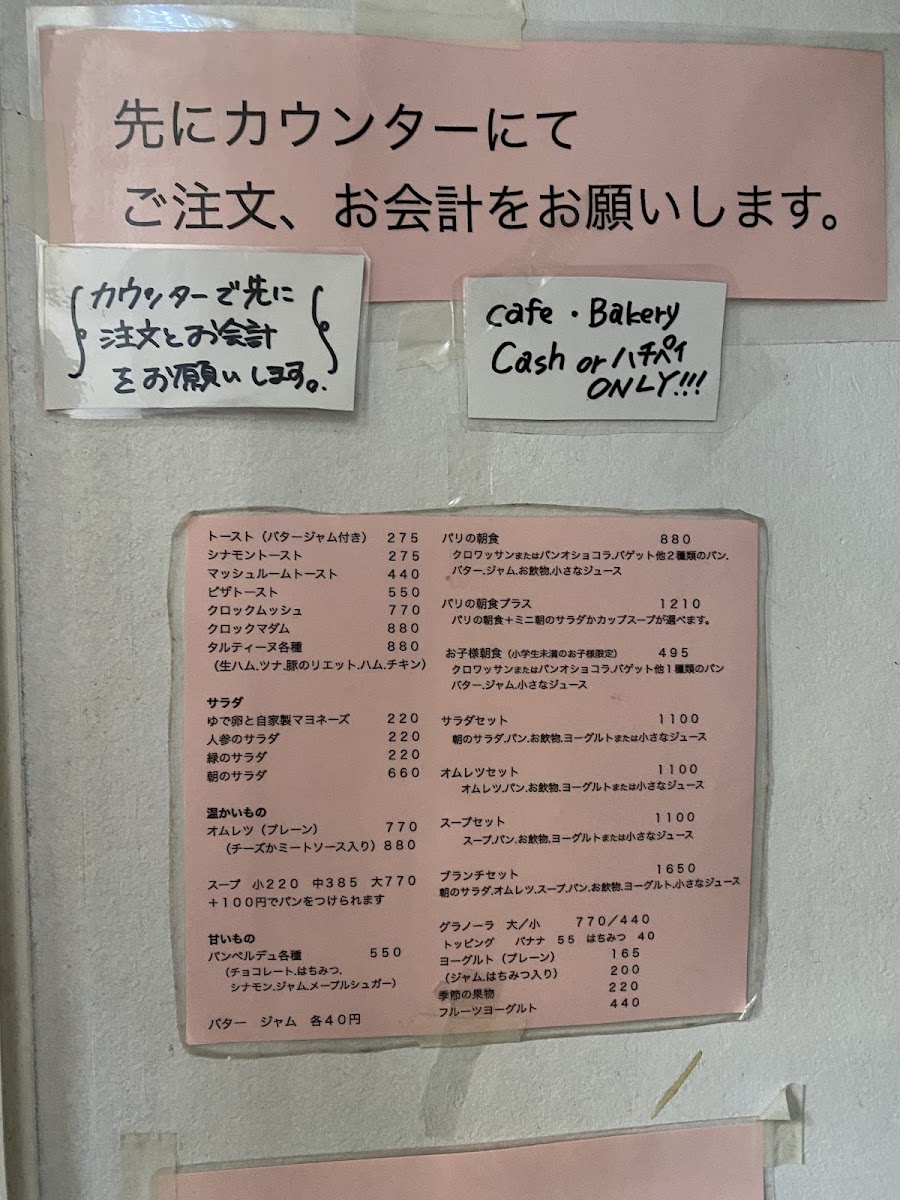 先にカウンターにて
ご注文、お会計をお願いします。
カウンターで先に
注文とお会計
をお願いします。
cafe・Bakery
Cash or ハチペイ
ONLY!!!
トースト（バタージャム付き） 275
シナモントースト 275
マッシュルームトースト 440
ピザトースト 550
クロックムッシュ 770
クロックマダム 880
タルティーヌ各種 880
（生ハム.ツナ.豚のリエット.ハム.チキン）
サラダ
ゆで卵と自家製マヨネーズ 220
人参のサラダ 220
緑のサラダ 220
朝のサラダ 660
温かいもの
オムレツ（プレーン） 770
（チーズかミートソース入り）880
スープ 小220 中385 大770
＋100円でパンをつけられます
甘いもの
パンペルデュ各種 550
（チョコレート.はちみつ.
シナモン.ジャム.メープルシュガー）
バター ジャム 各40円
パリの朝食 880
クロワッサンまたはパンオショコラ.バゲット他２種類のパン.
バター.ジャム.お飲物.小さなジュース
パリの朝食プラス 1210
パリの朝食＋ミニ朝のサラダかカップスープが選べます。
お子様朝食（小学生未満のお子様限定） 495
クロワッサンまたはパンオショコラ.バゲット他１種類のパン
バター.ジャム.小さなジュース
サラダセット 1100
朝のサラダ.パン.お飲物.ヨーグルトまたは小さなジュース
オムレツセット 1100
オムレツ.パン.お飲物.ヨーグルトまたは小さなジュース
スープセット 1100
スープ.パン.お飲物.ヨーグルトまたは小さなジュース
ブランチセット 1650
朝のサラダ.オムレツ.スープ.パン.お飲物.ヨーグルト.小さなジュース
グラノーラ 大／小 770／440
トッピング バナナ 55 はちみつ 40
ヨーグルト（プレーン） 165
（ジャム.はちみつ入り） 200
季節の果物 220
フルーツヨーグルト 440